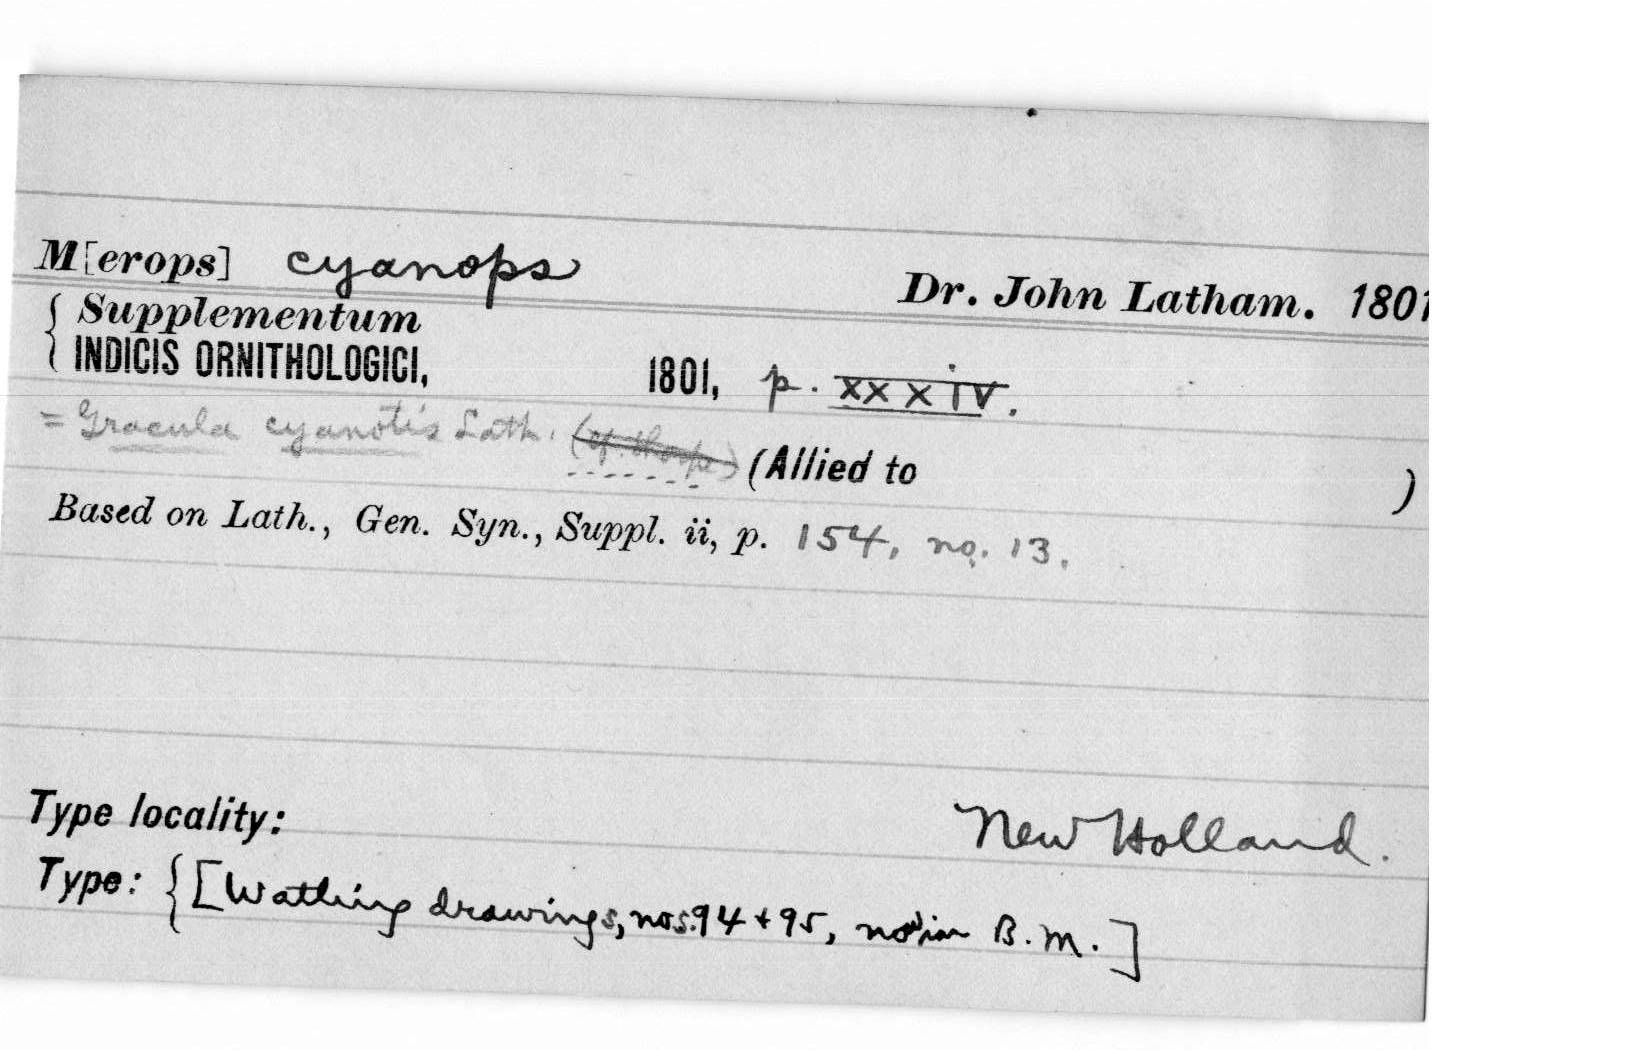 M[erops] cyanops Dr. John Latham. 1801
{ Supplementum
INDICIS ORNITHOLOGICI, 1801, p. xxxiv.
= Gracula cyanotis Lath. (cf. Sharpe) (Allied to )
Based on Lath., Gen. Syn., Suppl. ii, p. 154, no. 13.
Type locality: New Holland.
Type: { [Watling drawings, nos. 94 + 95, now in B.M.]